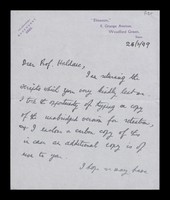 4, George Avenue,
Woodford Green,
28/1/49
Dear Prof. Haldane,
I am returning the
scripts which you very kindly lent me.
I took the opportunity of typing a copy
of the unabridged version for retention,
I enclose a carbon copy of this
in case an additional copy is of
use to you.
I hope we may have